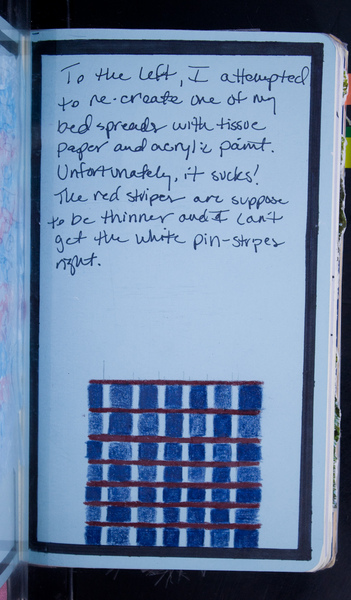 To the left, I attempted
to re-create one of my
bed spreads with tissue
paper and acrylic paint.
Unfortunately, it sucks!
The red stripes are suppose
to be thinner and I can't
get the white pin-stripes
right.